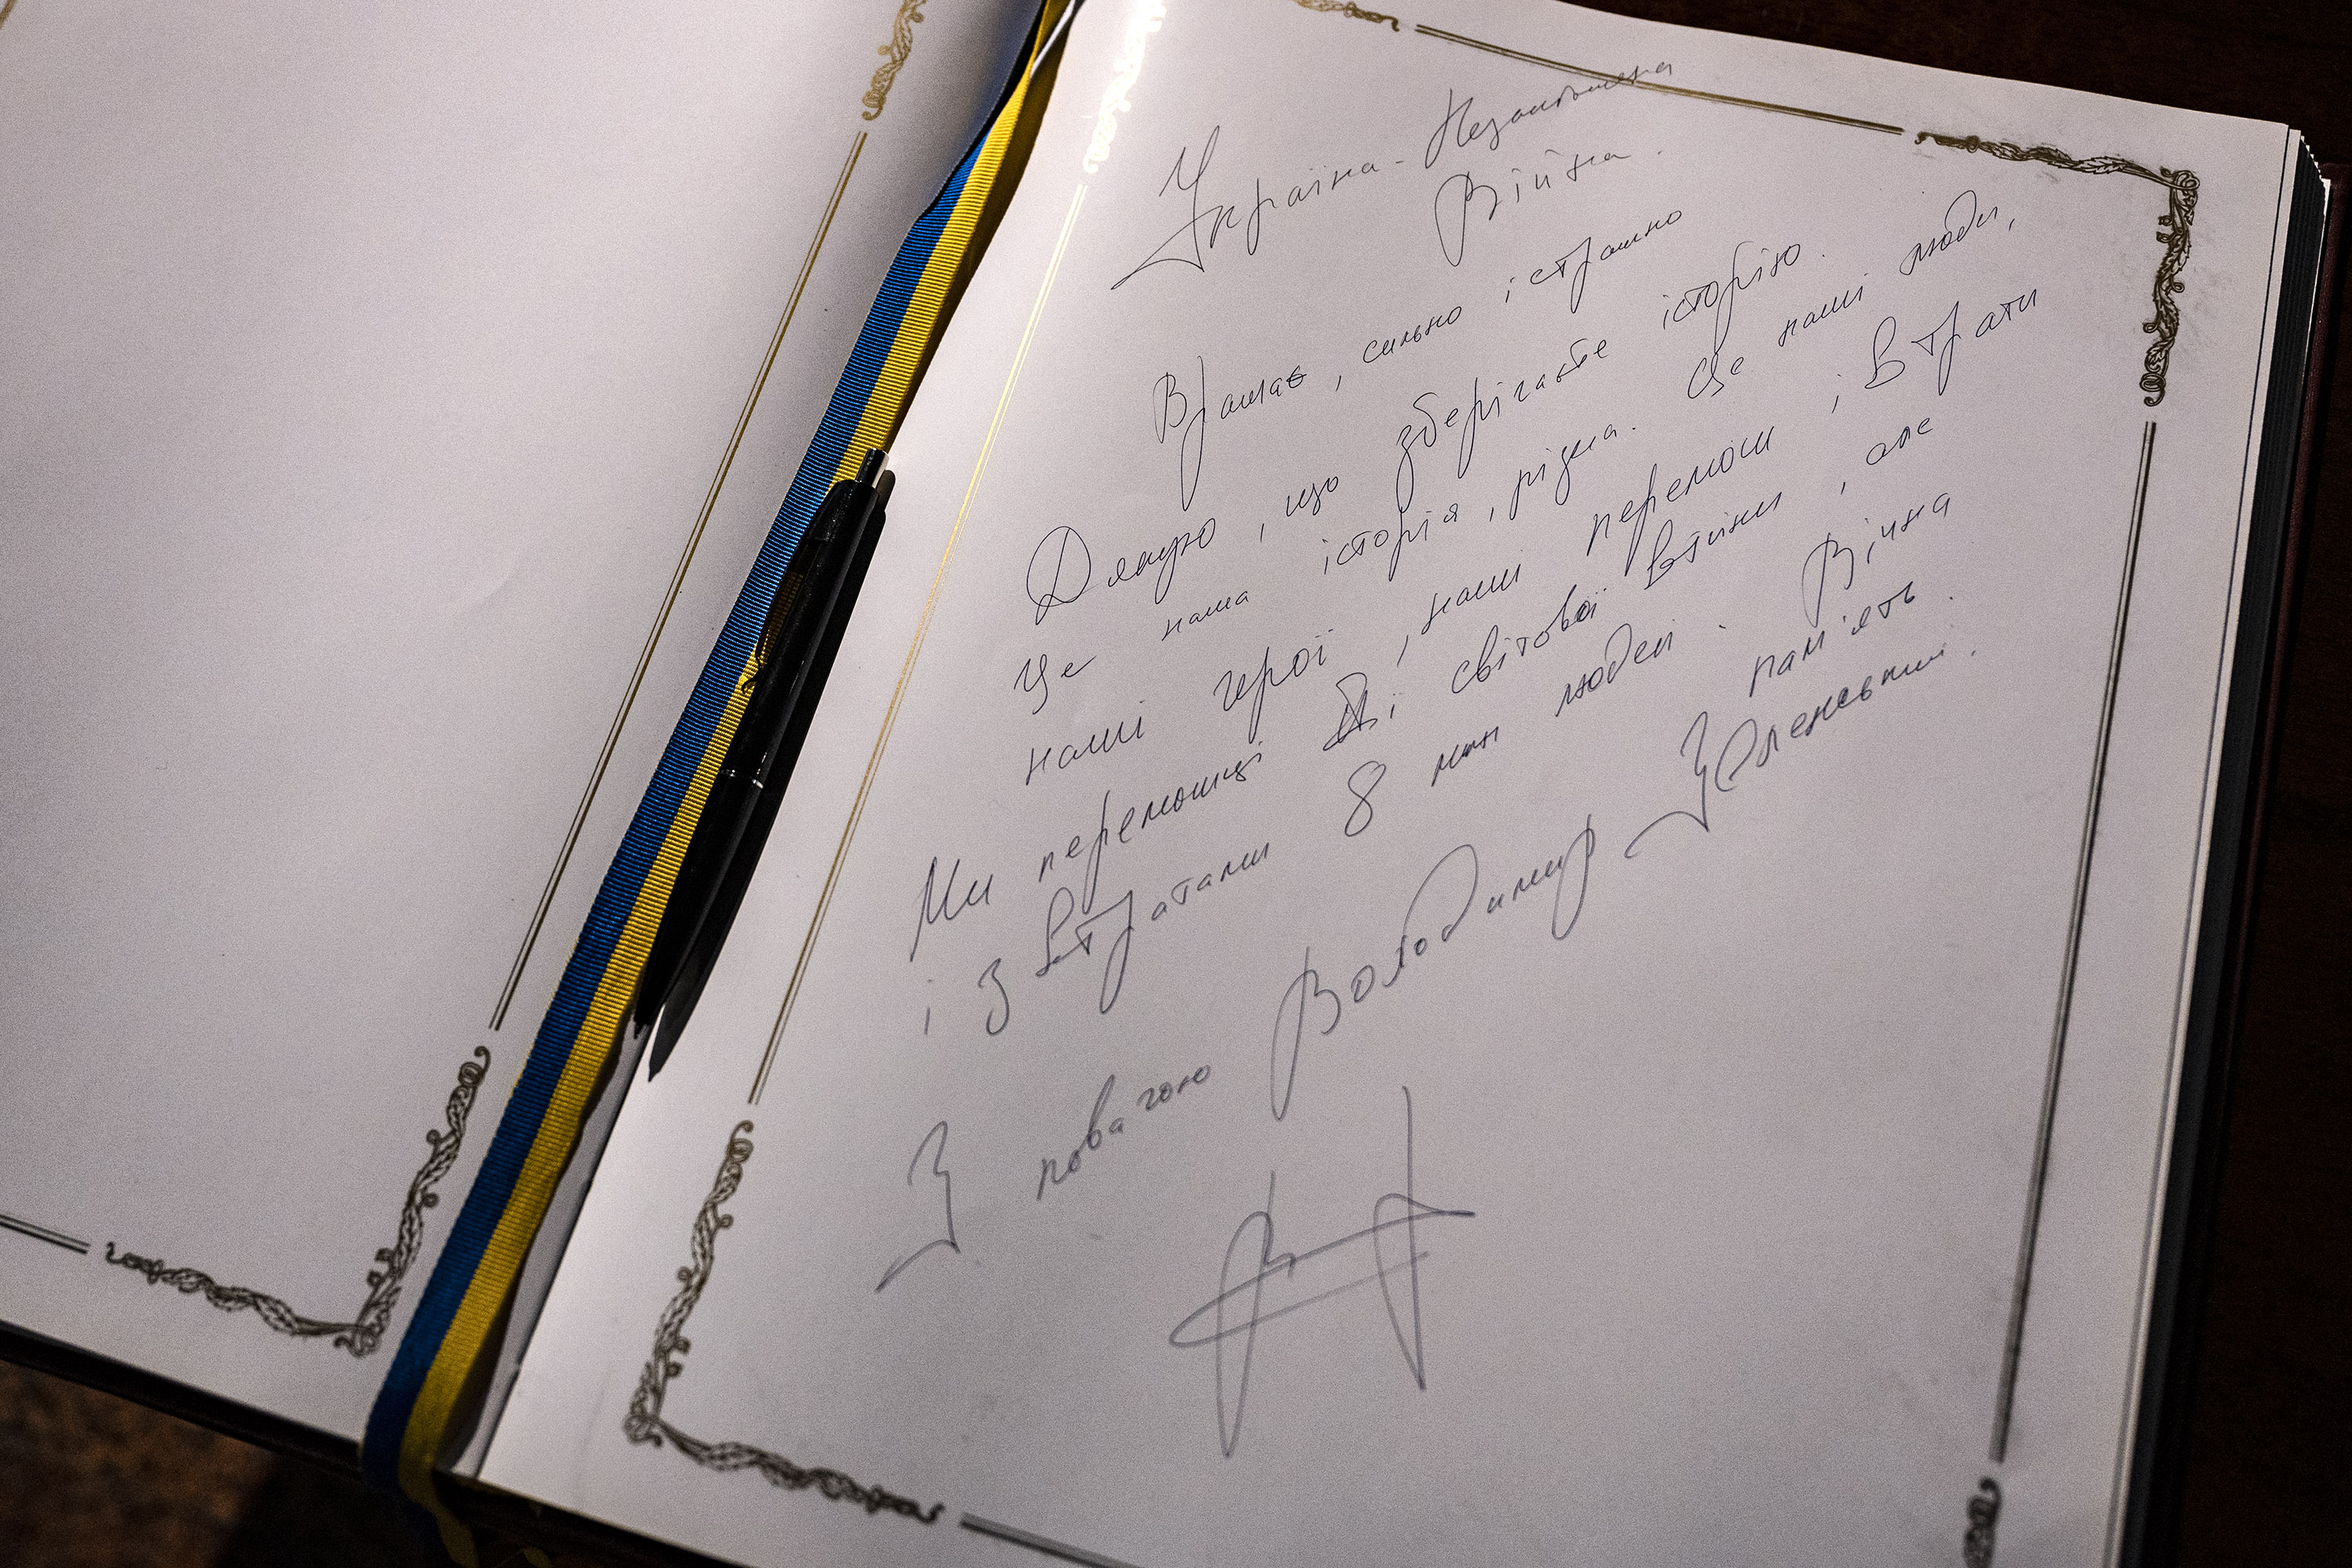 Україна - Незакінчена
Війна.
Вражає, сильно і страшно
Дякую, що зберігаєте історію.
Це наша історія, рідна. Це наші люди,
наші герої, наші перемоги і втрати
Ми переможці ІІ ї світової війни, але
і з втратами 8 млн людей. Вічна
пам'ять.
З повагою Володимир Зеленський.